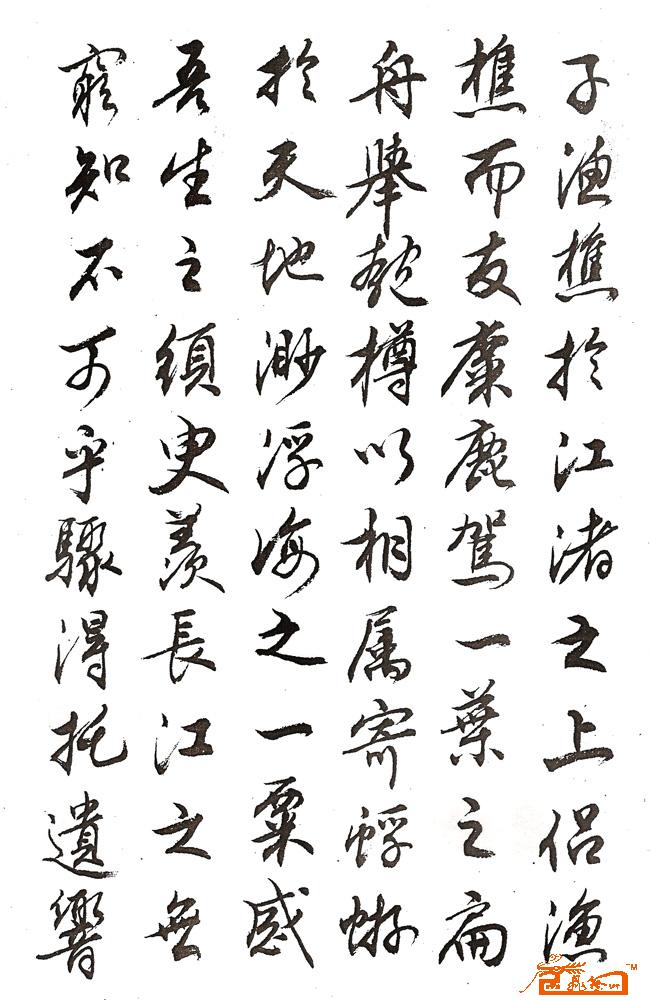 子漁樵於江渚之上侶漁
樵而友麋鹿駕一葉之扁
舟舉匏樽以相属寄蜉蝣
於天地渺浮海之一粟感
吾生之須臾羨長江之無
窮知不可乎驟得托遺響